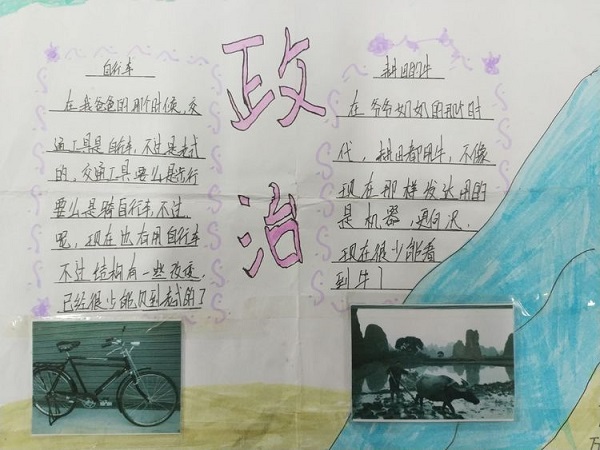 政治
自行车
在我爸爸的那个时候,交
通工具是自行车,不过是老式
的,交通工具要么是步行
要么是骑自行车,不过
呢,现在也有用自行车
不过结构有一些改变,
已经很少能见到老式的了
耕田的牛
在爷爷奶奶的那个时
代,耕田都用牛,不像
现在那样发达用的
是机器,
现在很少能看
到牛了
万